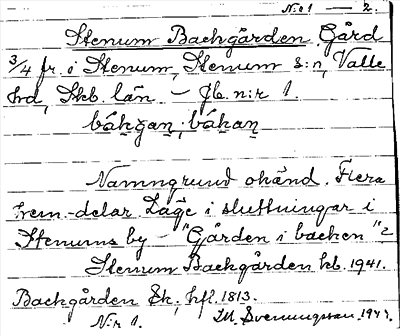 N:o 1 — 2.
Stenum Backgården. Gård
3/4 fr. i Stenum, Stenum s:n, Valle
hd, Skb. län. — Jb. n:r 1.
Namngrund okänd. Flera
hem.-delar. Läge i sluttningar i
Stenums by — "Gården i backen"?
Stenum Backgården kb. 1941.
Backgården Sk., hfl. 1813.
N:r 1. M. Svenningsson.